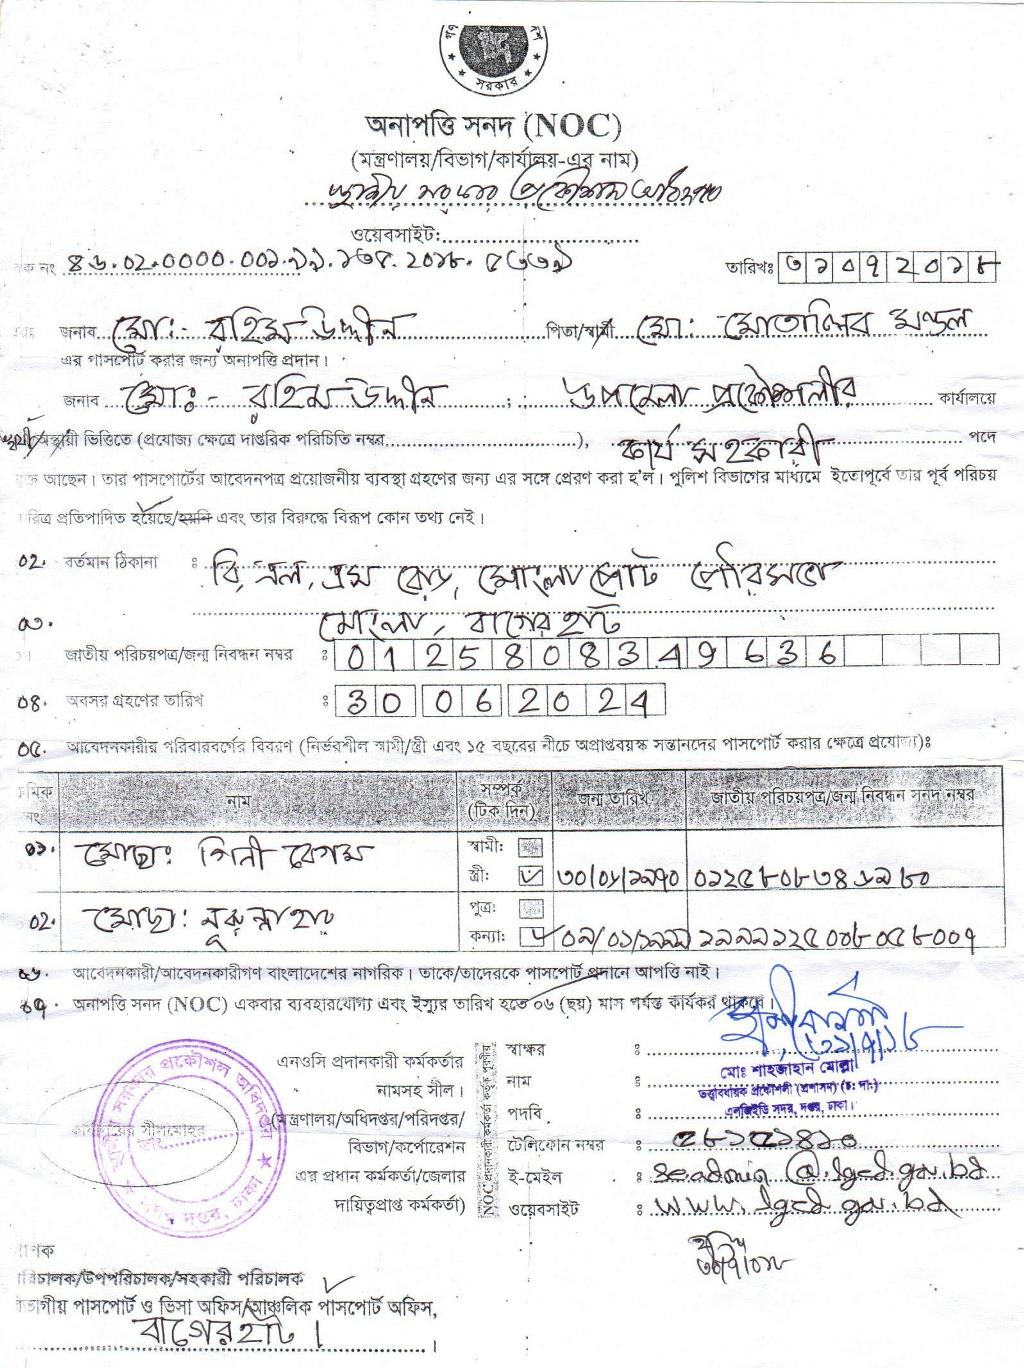 সরকার
অনাপত্তি সনদ (NOC)
(মন্ত্রণালয়/বিভাগ/কার্যালয়-এর নাম)
স্থানীয় সরকার প্রকৌশল অধিদপ্তর
ওয়েবসাইট:
নং ৪৬.০২.০০০০.০০১.৯৯.১৩৫.২০১৮. তারিখঃ ৩১০৭২০১৮
জনাব মো:- রহিম উদ্দীন পিতা/স্বামী মো: মোতালিব মন্ডল
এর পাসপোর্ট করার জন্য অনাপত্তি প্রদান।
জনাব মোঃ- রহিম উদ্দীন উপজেলা প্রকৌশলীর কার্যালয়ে
স্থায়ী/অস্থায়ী ভিত্তিতে (প্রযোজ্য ক্ষেত্রে দাপ্তরিক পরিচিতি নম্বর), কার্য সহকারী পদে
আছেন। তার পাসপোর্টের আবেদনপত্র প্রয়োজনীয় ব্যবস্থা গ্রহণের জন্য এর সঙ্গে প্রেরণ করা হ'ল। পুলিশ বিভাগের মাধ্যমে ইতোপূর্বে তার পূর্ব পরিচয়
প্রতিপাদিত হয়েছে/হয়নি এবং তার বিরুদ্ধে বিরূপ কোন তথ্য নেই।
০২. বর্তমান ঠিকানা : বি, এল, এস রোড, মোংলা পোর্ট পৌরসভা
মোংলা, বাগেরহাট
০৩.
জাতীয় পরিচয়পত্র/জন্ম নিবন্ধন নম্বর : 0125808349636
০৪. অবসর গ্রহণের তারিখ : 30062024
০৫. আবেদনকারীর পরিবারবর্গের বিবরণ (নির্ভরশীল স্বামী/স্ত্রী এবং ১৫ বছরের নীচে অপ্রাপ্তবয়স্ক সন্তানদের পাসপোর্ট করার ক্ষেত্রে প্রযোজ্য)ঃ
ক্রমিক নং নাম সম্পর্ক (টিক দিন) জন্ম তারিখ জাতীয় পরিচয়পত্র/জন্ম নিবন্ধন সনদ নম্বর
০১. মোছা: গিনী বেগম স্বামী:
স্ত্রী: ৩০/০৮/১৯৭০ ০১২৫৮০৮৩৪৬৯৮০
০২. মোছা: নুরুন্নাহার পুত্র:
কন্যা: ০৯/০১/১৯৯৯ ১৯৯৯১২৫০০৮০৫৮০০৭
০৬. আবেদনকারী/আবেদনকারীগণ বাংলাদেশের নাগরিক। তাকে/তাদেরকে পাসপোর্ট প্রদানে আপত্তি নাই।
০৭. অনাপত্তি সনদ (NOC) একবার ব্যবহারযোগ্য এবং ইস্যুর তারিখ হতে ০৬ (ছয়) মাস পর্যন্ত কার্যকর থাকবে।
স্থানীয় সরকার প্রকৌশল অধিদপ্তর
সদর দপ্তর, ঢাকা
কার্যালয়ের সীলমোহর
এনওসি প্রদানকারী কর্মকর্তার
নামসহ সীল।
(মন্ত্রণালয়/অধিদপ্তর/পরিদপ্তর/
বিভাগ/কর্পোরেশন
এর প্রধান কর্মকর্তা/জেলার
দায়িত্বপ্রাপ্ত কর্মকর্তা)
NOC প্রদানকারী কর্মকর্তা কর্তৃক পূরণীয়
স্বাক্ষর : ৩১/৭/১৮
নাম : মোঃ শাহজাহান মোল্লা
তত্ত্বাবধায়ক প্রকৌশলী (প্রশাসন) (চঃ দাঃ)
পদবি : এলজিইডি সদর দপ্তর, ঢাকা।
টেলিফোন নম্বর :
ই-মেইল : se.admin@lged.gov.bd
ওয়েবসাইট : www.lged.gov.bd
পরিচালক/উপপরিচালক/সহকারী পরিচালক
বিভাগীয় পাসপোর্ট ও ভিসা অফিস/আঞ্চলিক পাসপোর্ট অফিস,
বাগেরহাট।